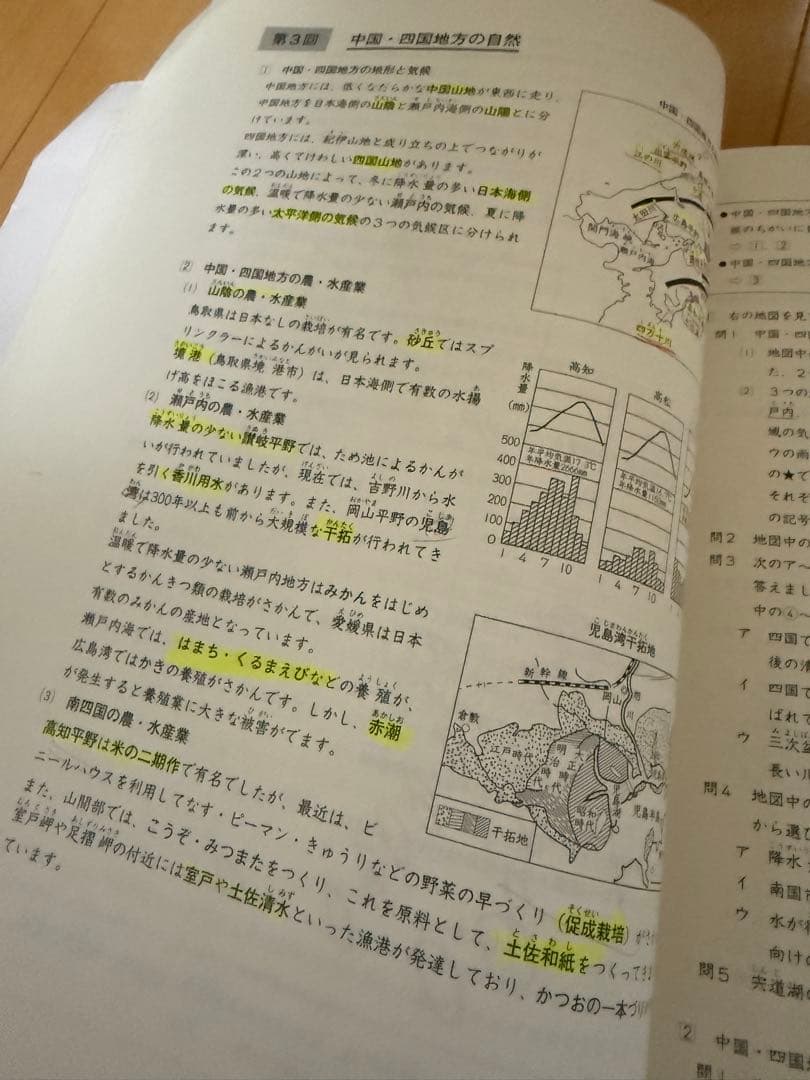 第3回 中国・四国地方の自然
1 中国・四国地方の地形と気候
中国地方には、低くなだらかな中国山地が東西に走り、
中国地方を日本海側の山陰と瀬戸内海側の山陽とに分
けています。
四国地方には、紀伊山地と成り立ちの上でつながりが
深い、高くてけわしい四国山地があります。
この2つの山地によって、冬に降水量の多い日本海側
の気候、温暖で降水量の少ない瀬戸内の気候、夏に降
水量の多い太平洋側の気候の3つの気候区に分けられ
ます。
2 中国・四国地方の農・水産業
(1) 山陰の農・水産業
鳥取県は日本なしの栽培が有名です。砂丘ではスプ
リンクラーによるかんがいが見られます。
境港(鳥取県境港市)は、日本海側で有数の水揚
げ高をほこる漁港です。
(2) 瀬戸内の農・水産業
降水量の少ない讃岐平野では、ため池によるかんが
いが行われていましたが、現在では、吉野川から水
を引く香川用水があります。また、岡山平野の児島
湾は300年以上も前から大規模な干拓が行われてき
ました。
温暖で降水量の少ない瀬戸内地方はみかんをはじめ
とするかんきつ類の栽培がさかんで、愛媛県は日本
有数のみかんの産地となっています。
瀬戸内海では、はまち・くるまえびなどの養殖が、
広島湾ではかきの養殖がさかんです。しかし、赤潮
が発生すると養殖業に大きな被害がでます。
(3) 南四国の農・水産業
高知平野は米の二期作で有名でしたが、最近は、ビ
ニールハウスを利用してなす・ピーマン・きゅうりなどの野菜の早づくり(促成栽培)が
また、山間部では、こうぞ・みつまたをつくり、これを原料として、土佐和紙をつくって
室戸岬や足摺岬の付近には室戸や土佐清水といった漁港が発達しており、かつおの一本づり
ています。
中国・四国地
江の川
太田川
広島平野
関門海峡
瀬戸内海
四万十川
降水量(mm)
高知
高松
年平均気温17.3℃
年降水量2666mm
500
400
300
200
100
0
1 4 7 10
1 4 7 10
児島湾干拓地
新幹線
岡山
倉敷
江戸時代
明治時代
大正
昭和時代
児島湾
児島半島
干拓地
●中国・四国地
●中国・四国地方
⇨ 1、2
⇨ 3
右の地図を見て
問1 中国・四
(1) 地図中
た、2
(2) 3つの
戸内
域の気
ウの雨
の★で
それぞ
の記号
問2 地図中の
問3 次のア～
答えまし
中の④～
ア 四国で
後の清
イ 四国で
ばれて
ウ 三次盆
長い川
問4 地図中の
から選び
ア 降水
イ 南国市
ウ 水が得
向けの
問5 宍道湖の
2 中国・四国
問1